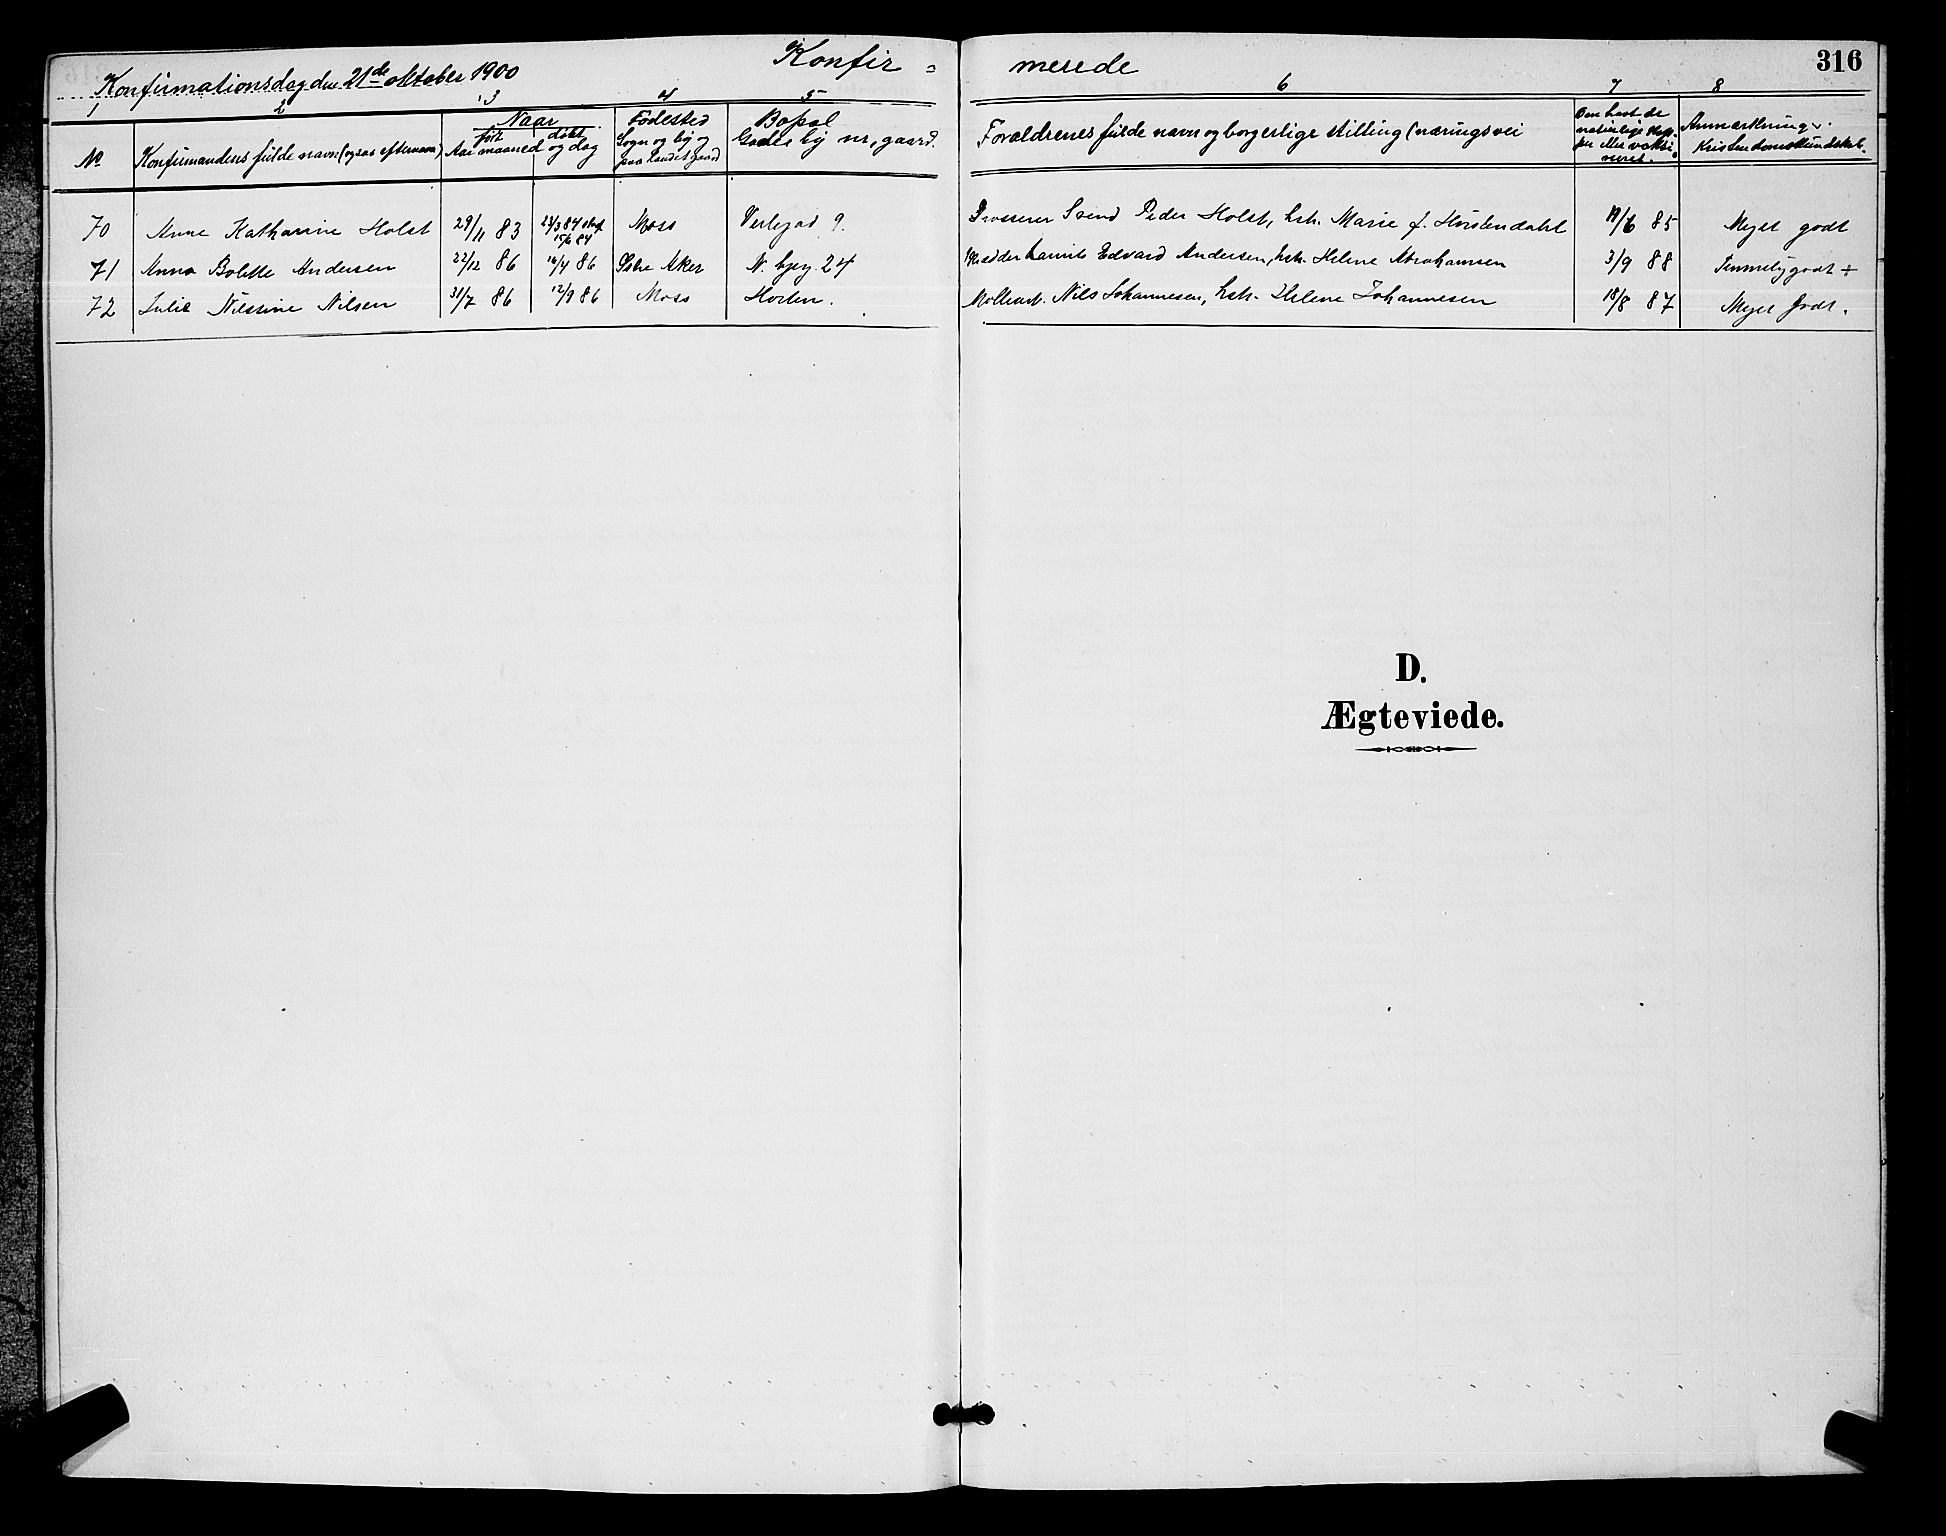 Konfir = merede 316
Konfirmationsdag den 21de oktober 1900
1 2 3 4 5 6 7 8
No Konfirmandens fulde navn (ogsaa efternavn) Naar født døbt Aar maaned og dag Fødested Sogn og by og paa landet gaard Bopæl Gades by nr, gaard. Forældrenes fulde navn og borgerlige stilling (næringsvei Om havt de naturlige Kop. per eller vaksi neret. Anmærkning Kristendomskundskab.
70 Anne Katharine Holst 29/11 83 23/3 84 15/6 84 Moss Verlegad 9. Svend Peder Holst, hst. Marie f. 19/6 85 Meget godt
71 Anna Bolette Andersen 22/12 86 16/4 86 Østre Aker N. bjeg 24 Edvard Andersen, hst. Helene Abrahamsen 3/9 88 Temmelig godt +
72 Julie Nilssine Nilsen 31/7 86 12/9 86 Moss Horten. Møllearb. Nils Johannesen, hst. Helene Johannesen 18/8 87 Meget godt.
D.
Ægteviede.